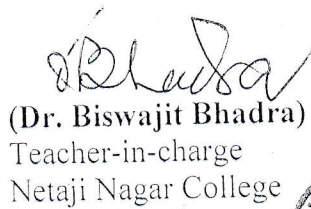 Bhadra
(Dr. Biswajit Bhadra)
Teacher-in-charge
Netaji Nagar College